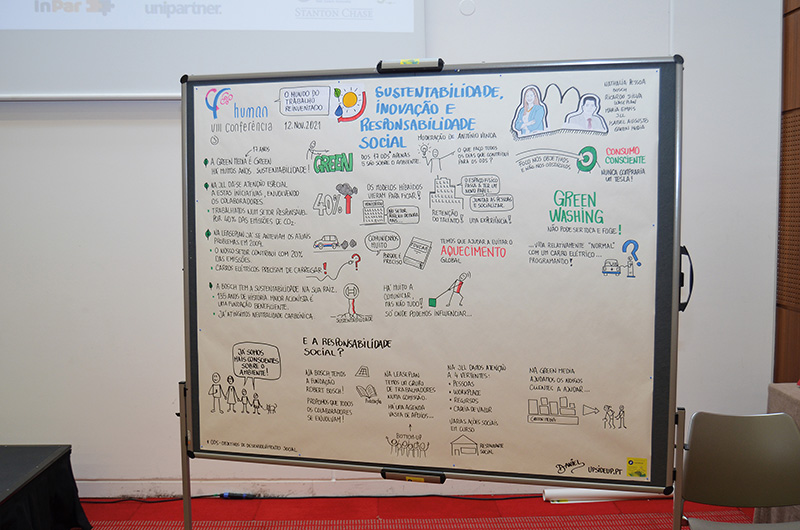 InPar
unipartner.
STANTON CHASE
human
VIII Conferência
O MUNDO DO
TRABALHO
REINVENTADO
12.Nov.2021
SUSTENTABILIDADE,
INOVAÇÃO E
RESPONSABILIDADE
SOCIAL
MODERAÇÃO DE ANTÓNIO
RICARDO SILVA
LEASEPLAN
JLL
ISABEL AUGUSTO
GREEN MEDIA
17 ANOS
A GREEN MEDIA É GREEN
HÁ MUITOS ANOS, SUSTENTABILIDADE!
GREEN
DOS 17 ODS APENAS
5 SÃO SOBRE O AMBIENTE.
O QUE FAÇO TODOS
OS DIAS QUE CONTRIBUI
PARA OS ODS?
CONSUMO
CONSCIENTE
NUNCA COMPRARIA
UM TESLA!
NA JLL DÁ-SE ATENÇÃO ESPECIAL
A ESTAS INICIATIVAS, ENVOLVENDO
OS COLABORADORES.
TRABALHAMOS NUM SETOR RESPONSÁVEL
POR 40% DAS EMISSÕES DE CO2.
40%
OS MODELOS HÍBRIDOS
VIERAM PARA FICAR!
O ESPAÇO FÍSICO
PASSA A TER UM
NOVO PAPEL
JUNTAR AS PESSOAS
E SOCIALIZAR
RETENÇÃO
DO TALENTO!
UMA EXPERIÊNCIA!
GREEN
WASHING
NÃO PODE SER TOCA E FOGE!
NA LEASEPLAN JÁ SE ANTEVIAM OS ATUAIS
PROBLEMAS EM 2009.
O NOSSO SETOR CONTRIBUI COM 20%
DAS EMISSÕES.
CARROS ELÉTRICOS PRECISAM DE CARREGAR!
COMUNICAMOS
MUITO
PORQUE É
PRECISO
EDUCAR
TEMOS QUE AJUDAR A EVITAR O
AQUECIMENTO
GLOBAL
...VIDA RELATIVAMENTE "NORMAL"
COM UM CARRO ELÉTRICO...
PROGRAMANDO!
A BOSCH TEM A SUSTENTABILIDADE NA SUA RAIZ.
135 ANOS DE HISTÓRIA MAIOR ACIONISTA É
UMA FUNDAÇÃO BENEFICENTE.
JÁ ATINGIMOS NEUTRALIDADE CARBÓNICA.
SUSTENTABILIDADE
HÁ MUITO A
COMUNICAR,
MAS NÃO TUDO!
SÓ ONDE PODEMOS INFLUENCIAR...
E A RESPONSABILIDADE
SOCIAL?
JÁ SOMOS
MAIS CONSCIENTES
SOBRE O
AMBIENTE!
NA BOSCH TEMOS
A FUNDAÇÃO
ROBERT BOSCH!
PROPOMOS QUE TODOS
OS COLABORADORES
SE ENVOLVAM!
NA LEASEPLAN
TEMOS UM GRUPO
DE TRABALHADORES
NUMA CONFTEAM.
HÁ UMA AGENDA
VASTA DE APOIOS...
BOTTOM-UP
NA JLL DAMOS ATENÇÃO
A 4 VERTENTES:
PESSOAS
WORKPLACE
RECURSOS
CADEIA DE VALOR
VÁRIAS AÇÕES SOCIAIS
EM CURSO
RESTAURANTE
SOCIAL
NA GREEN MEDIA
AJUDAMOS OS NOSSOS
CLIENTES A AJUDAR...
GREEN MEDIA
* ODS-OBJETIVOS DE DESENVOLVIMENTO SOCIAL
DANIEL
UPSIDEUP.PT